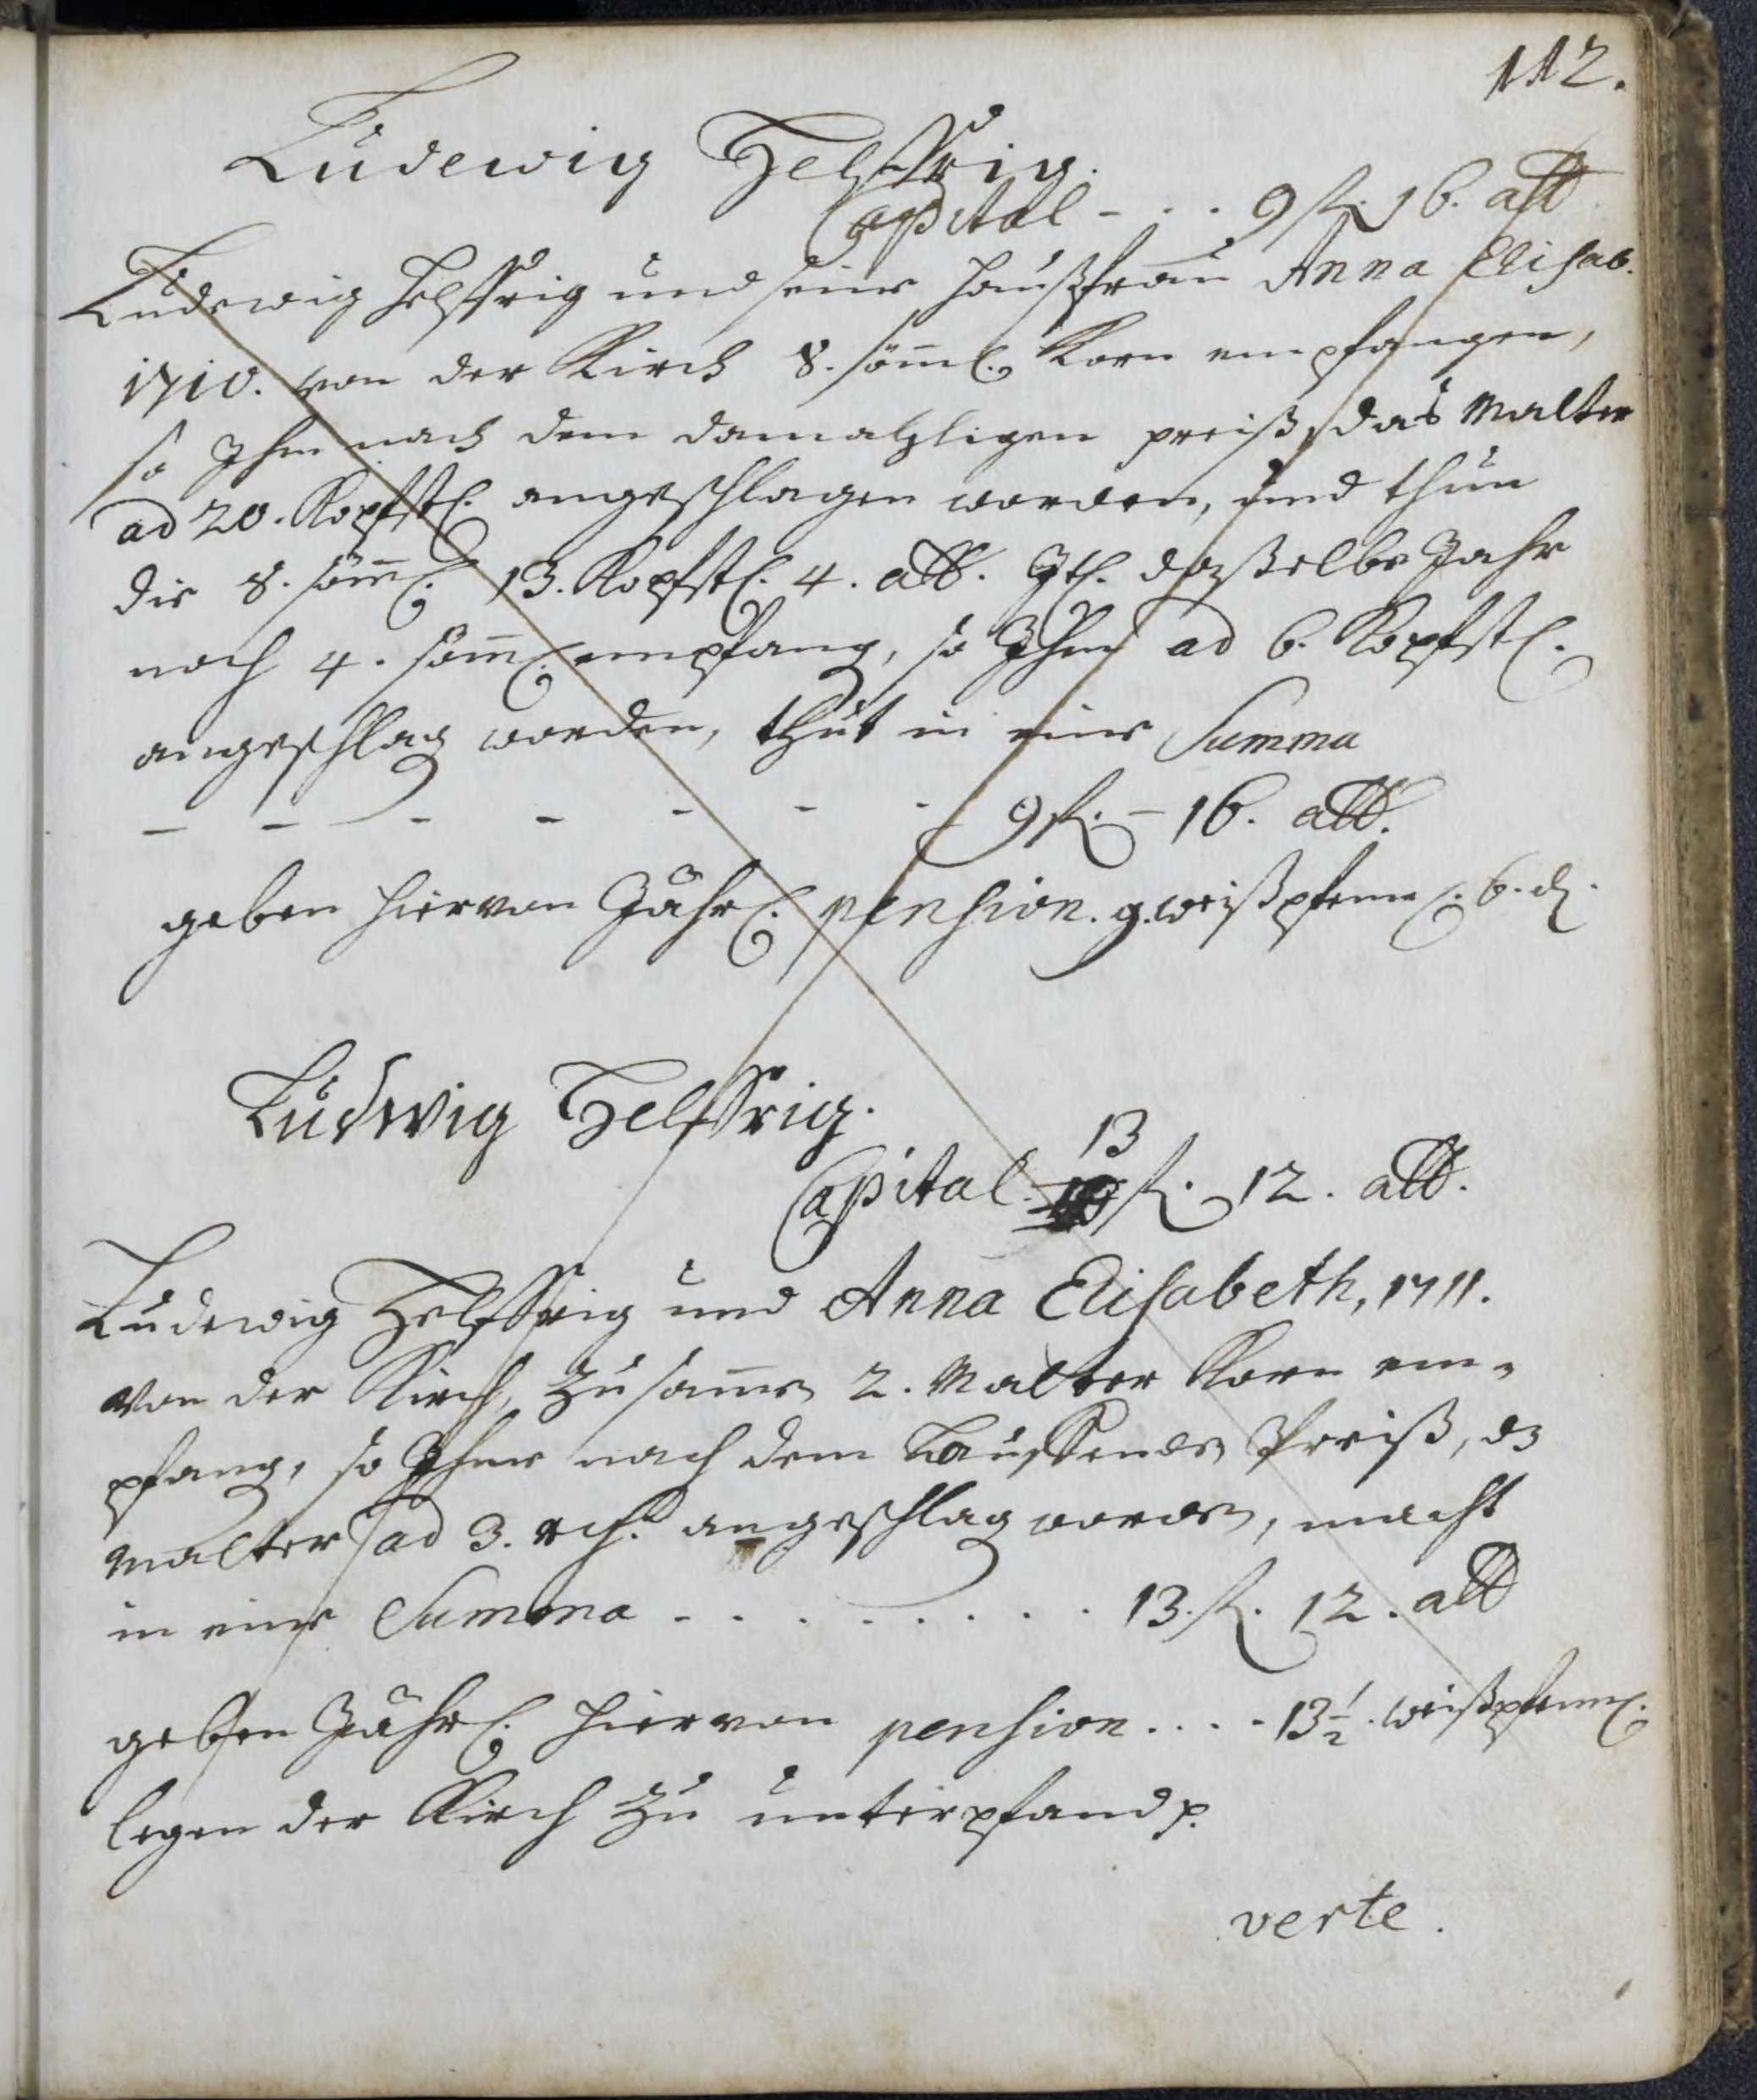 112.
Ludewig Helffrig.
Capital - . . 9 fl. 16. alb
Ludewig Helffrig und seine Haußfrau Anna Elisab.
1710. von der Kirch 8. söm̄l. Korn empfangen,
so Ihm nach dem damahligen preiß, das Malter
ad 20. Kopfstl. angeschlagen worden, und thun
die 8. söm̄l. 13. Kopfstl. 4. alb. It. daßselbe Jahr
noch 4. söm̄l. empfang, so Ihm ad 6. Kopfstl.
angeschlag worden, thut in eine Summa
- - - - - - - 9 fl. - 16. alb.
geben hiervon Jährl. pension. 9. weißpfenn. 6. d.
Ludwig Helffrig.
13
Capital. fl. 12. alb.
Ludewig Helffrig und Anna Elisabeth, 1711.
Von der Kirch, zusam̄en 2. Malter Korn em-
pfang, so Ihne nach dem Lauffenden Preiß, dz
Malter ad 3. rth. angeschlag worden, macht
in eine Summa - . . . . . . . 13. fl. 12. alb
geben Jährl. hiervon pension . . . . 13½. weißpfenn.
legen der Kirch zu unterpfand p.
verte.